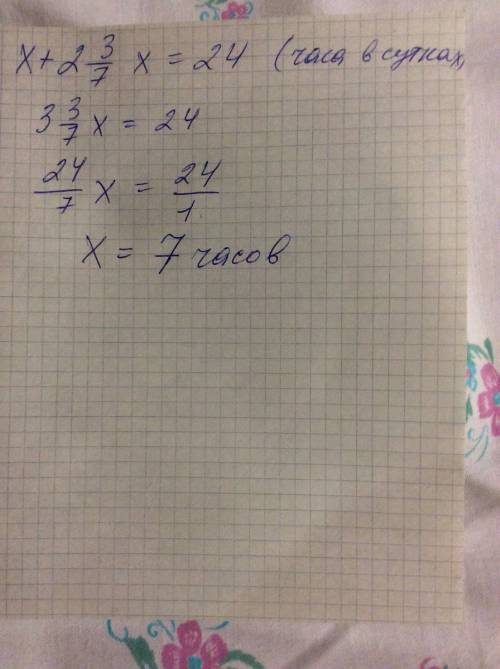 x + 2 3/7 x = 24 (часа в сутках,
3 3/7 x = 24
24/7 x = 24/1
x = 7 часов